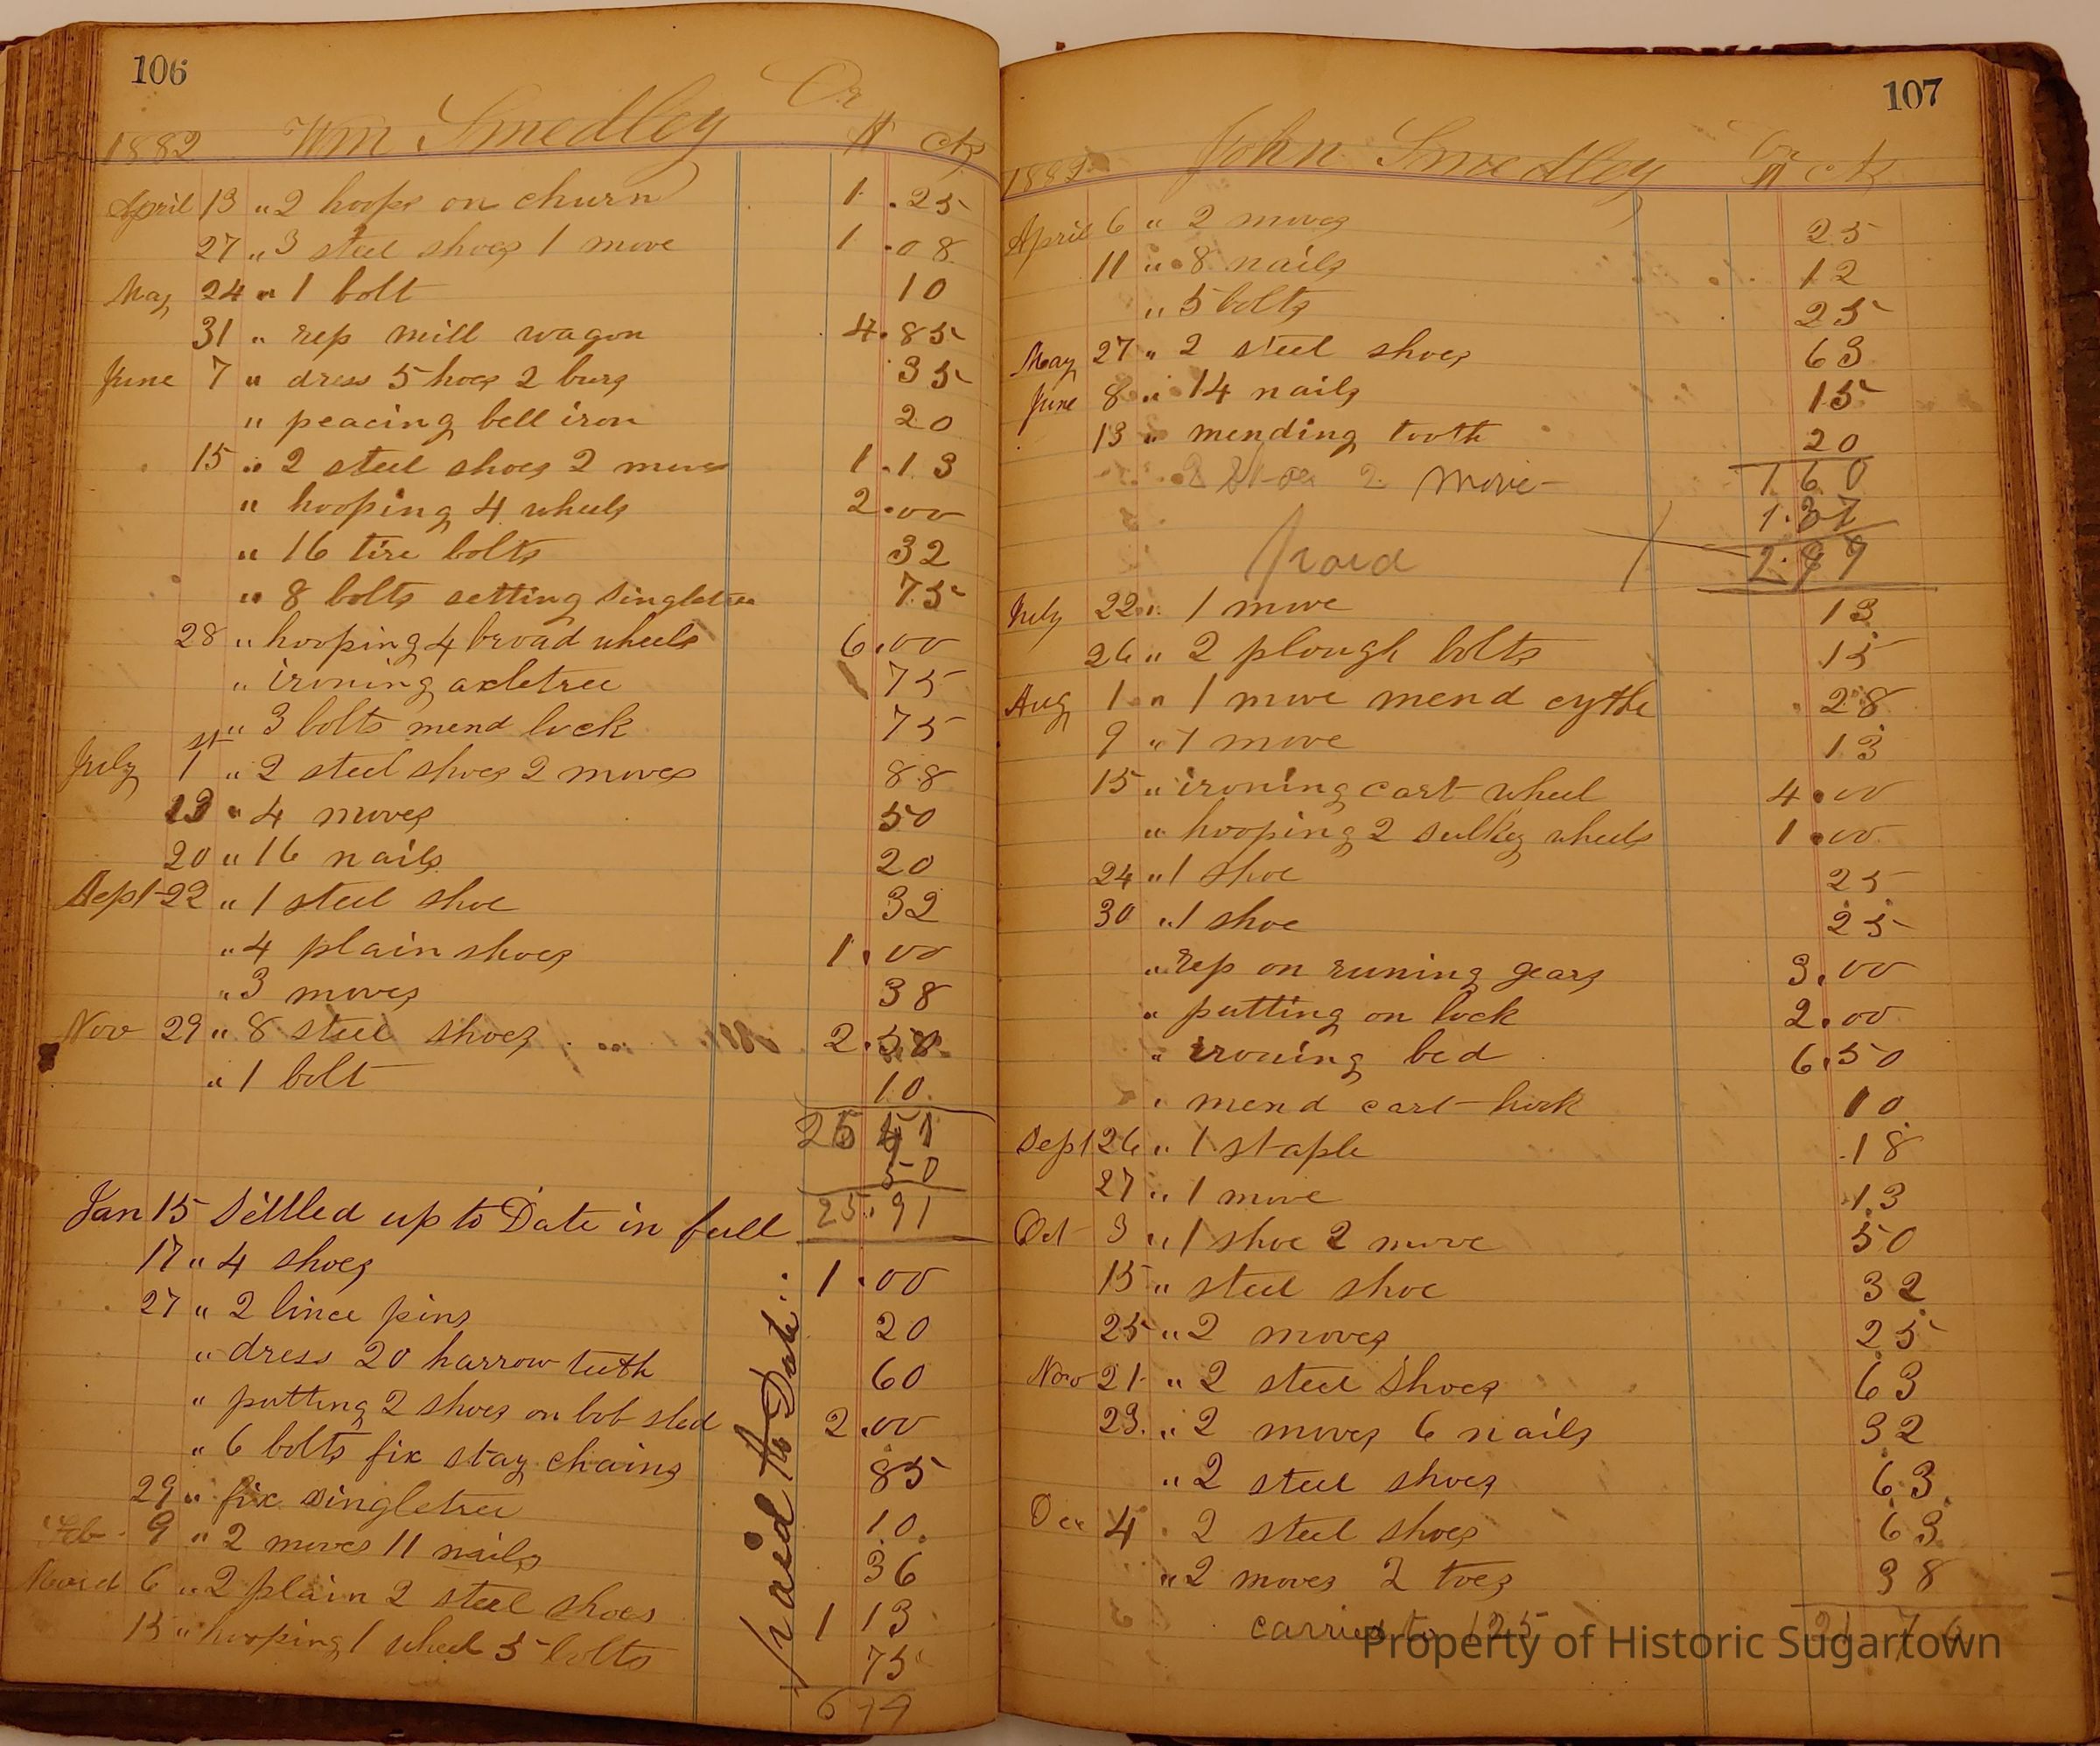 106
Wm Smedley Dr
1882 $ cts
April 13 " 2 hoops on churn 1.25
27 " 3 steel shoes 1 move 1.08
May 24 " 1 bolt 10
31 " rep mill wagon 4.85
June 7 " dress 5 hoes 2 burs 35
" peacing bell iron 20
15 " 2 steel shoes 2 moves 1.13
" hooping 4 wheels 2.00
" 16 tire bolts 32
" 8 bolts setting singletree 75
28 " hooping 4 broad wheels 6.00
" ironing axletree 75
" 3 bolts mend lock 75
July 1st " 2 steel shoes 2 moves 88
13 " 4 moves 50
20 " 16 nails 20
Sept 22 " 1 steel shoe 32
" 4 plain shoes 1.00
" 3 moves 38
Nov 29 " 8 steel shoes 2.50
" 1 bolt 10
25 41
50
Jan 15 Settled up to Date in full 25.91
17 " 4 shoes 1.00
27 " 2 lince pins 20
" dress 20 harrow teeth 60
" putting 2 shoes on bob sled 2.00
" 6 bolts fix stay chains 85
29 " fix singletree 10
Feb 9 " 2 moves 11 nails 36
March 6 " 2 plain 2 steel shoes 1 13
15 " hooping 1 wheel 5 bolts 75
paid to Date
107
John Smedley Dr
1882 $ cts
April 6 " 2 moves 25
11 " 8 nails 12
" 5 bolts 25
May 27 " 2 steel shoes 63
June 8 " 14 nails 15
13 " mending tooth 20
2 move 1 60
1.37
paid 2.97
July 22 " 1 move 13
26 " 2 plough bolts 15
Aug 1 " 1 move mend cythe 28
9 " 1 move 13
15 " ironing cart wheel 4.00
" hooping 2 sulkey wheels 1.00
24 " 1 shoe 25
30 " 1 shoe 25
" rep on runing gears 3.00
" putting on lock 2.00
" ironing bed 6.50
" mend cart hook 10
Sept 26 " 1 staple 18
27 " 1 move 13
Oct 3 " 1 shoe 2 move 50
15 " steel shoe 32
25 " 2 moves 25
Nov 21 " 2 steel shoes 63
23 " 2 moves 6 nails 32
" 2 steel shoes 63
Dec 4 2 steel shoes 63
" 2 moves 2 toes 38
carried to 125 21 76
Property of Historic Sugartown